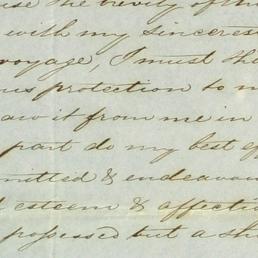 use the brevity of th
with my sinceres
voyage, I must tha
us protection to m
aw it from me in
part do my best ef
mitted & endeavou
esteem & affectio
possessed but a sh